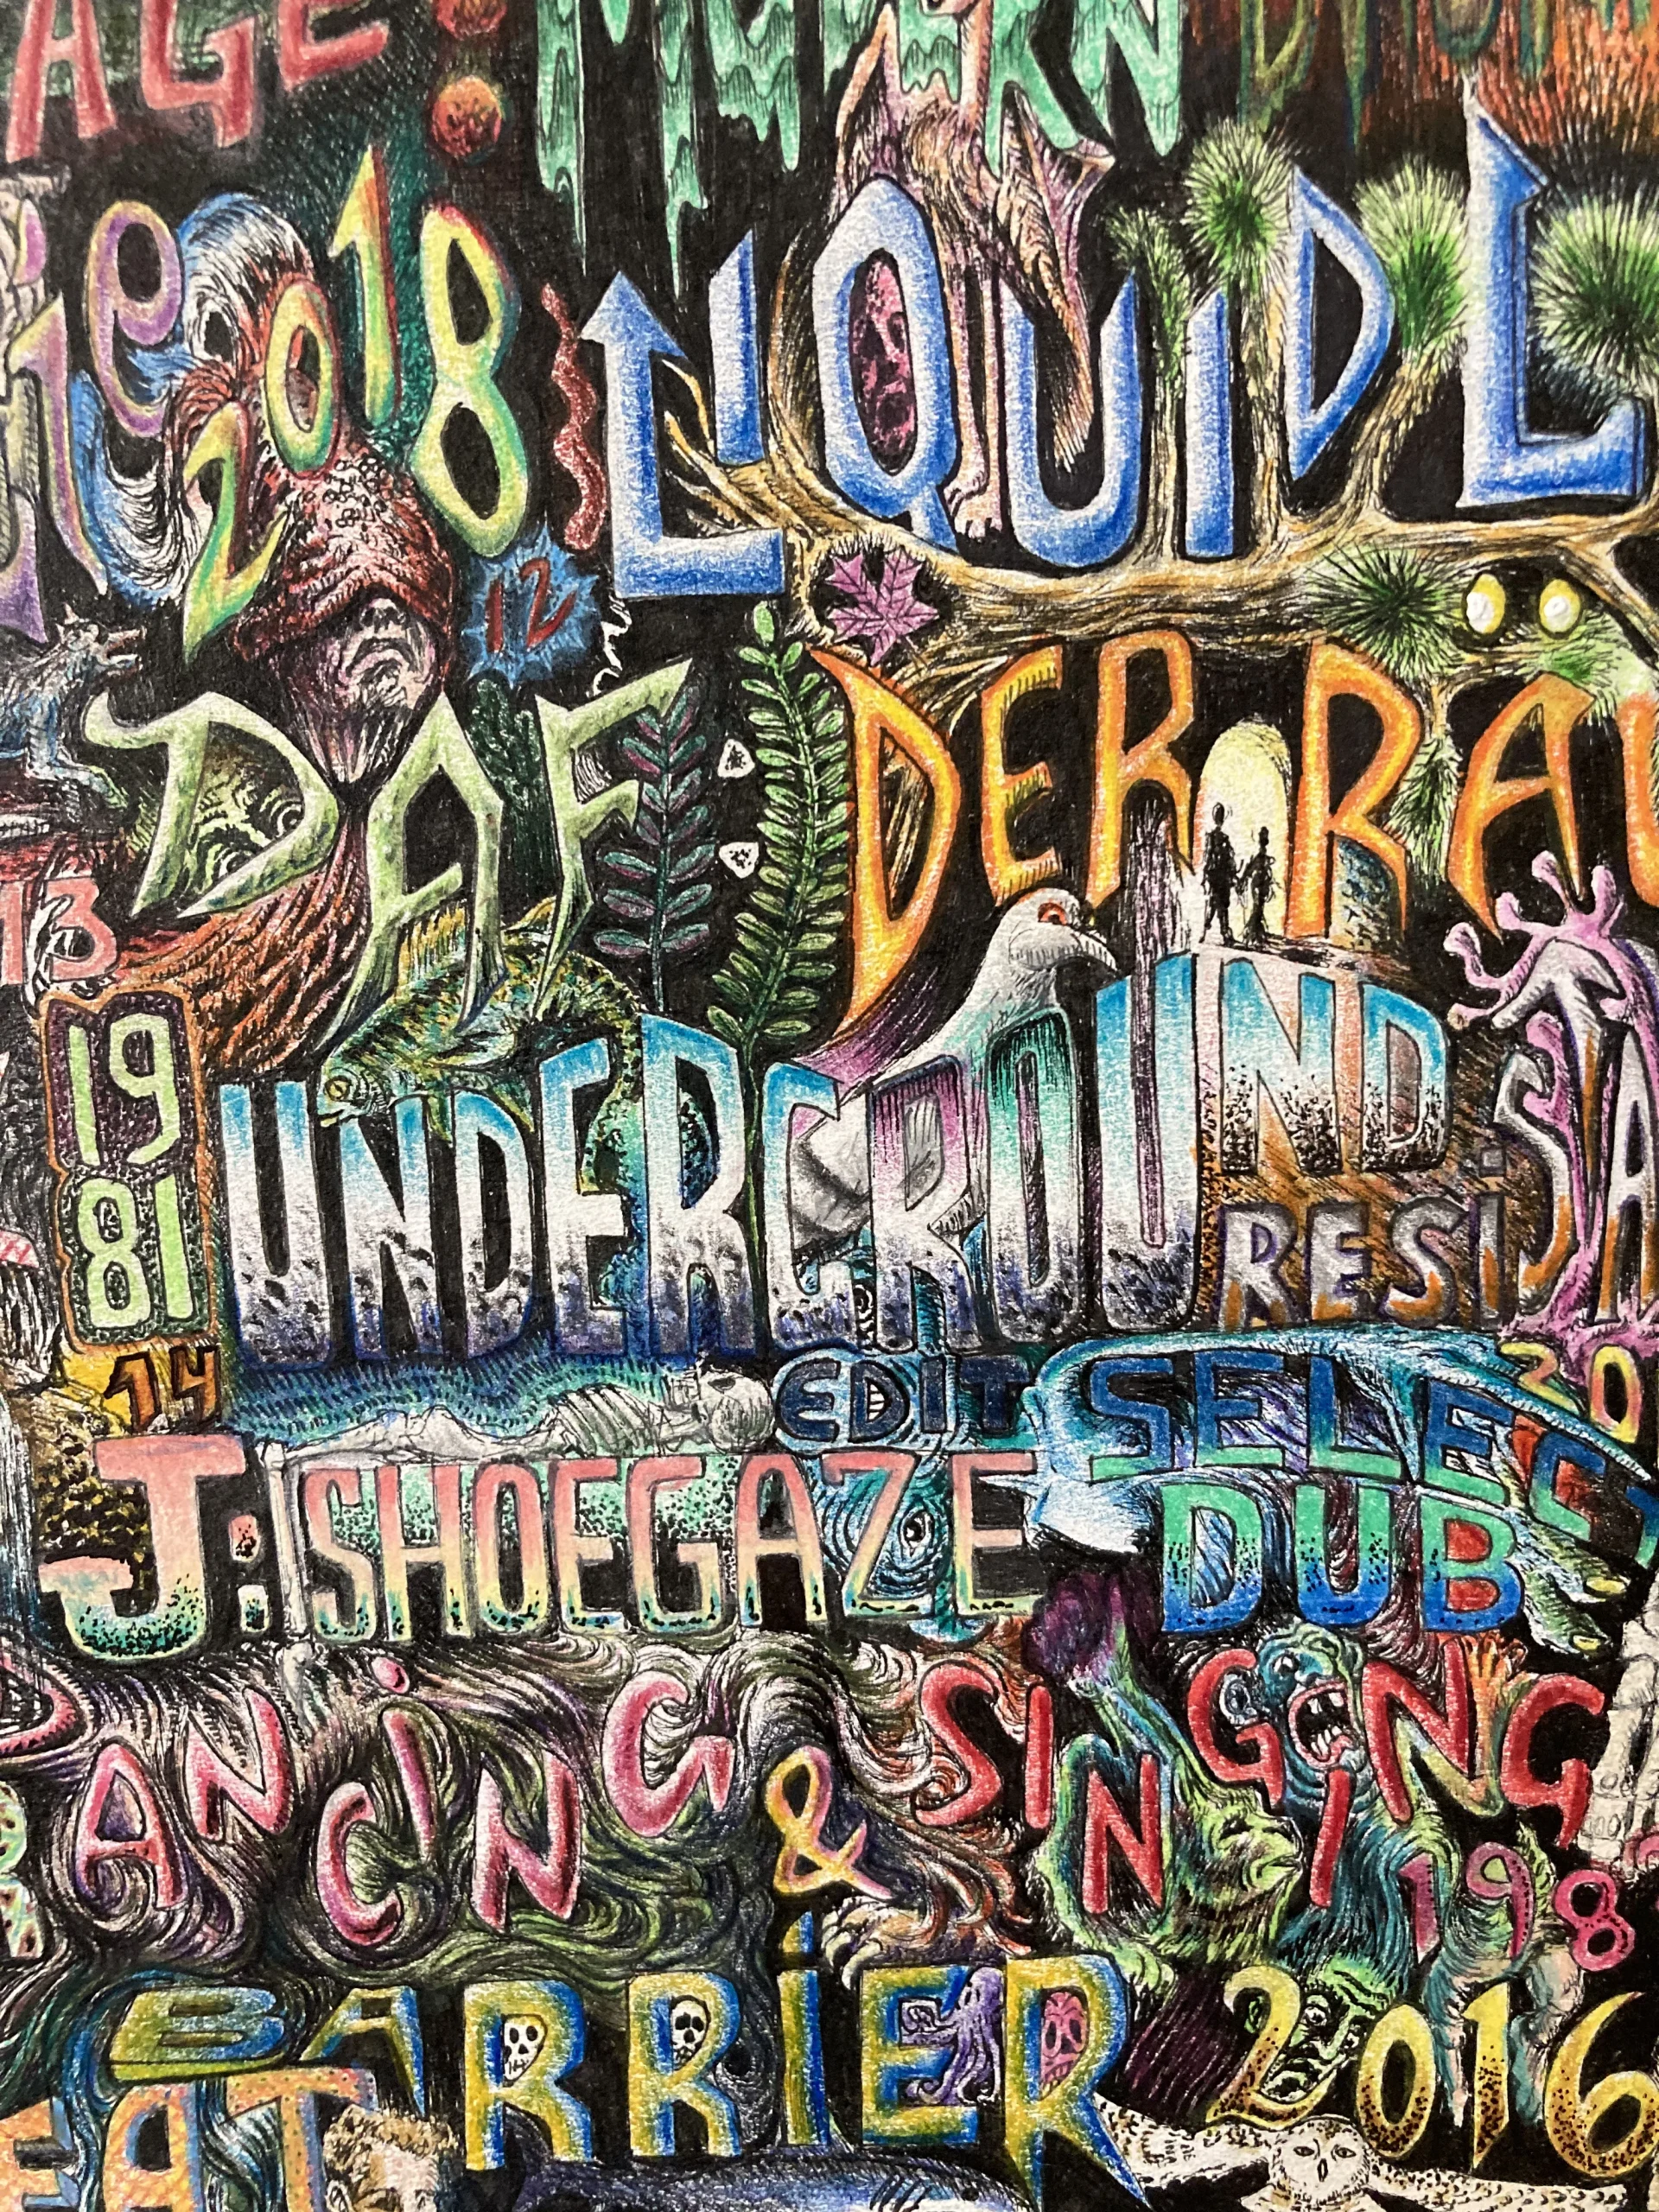 AGE:
2018 LIQUID L
12
DAF: DER RAU
13
1981 UNDERGROUND RESISTA
14
EDIT SELEC
20
J: SHOEGAZE DUB
DANCING & SINGING 198
BARRIER 2016
EAT